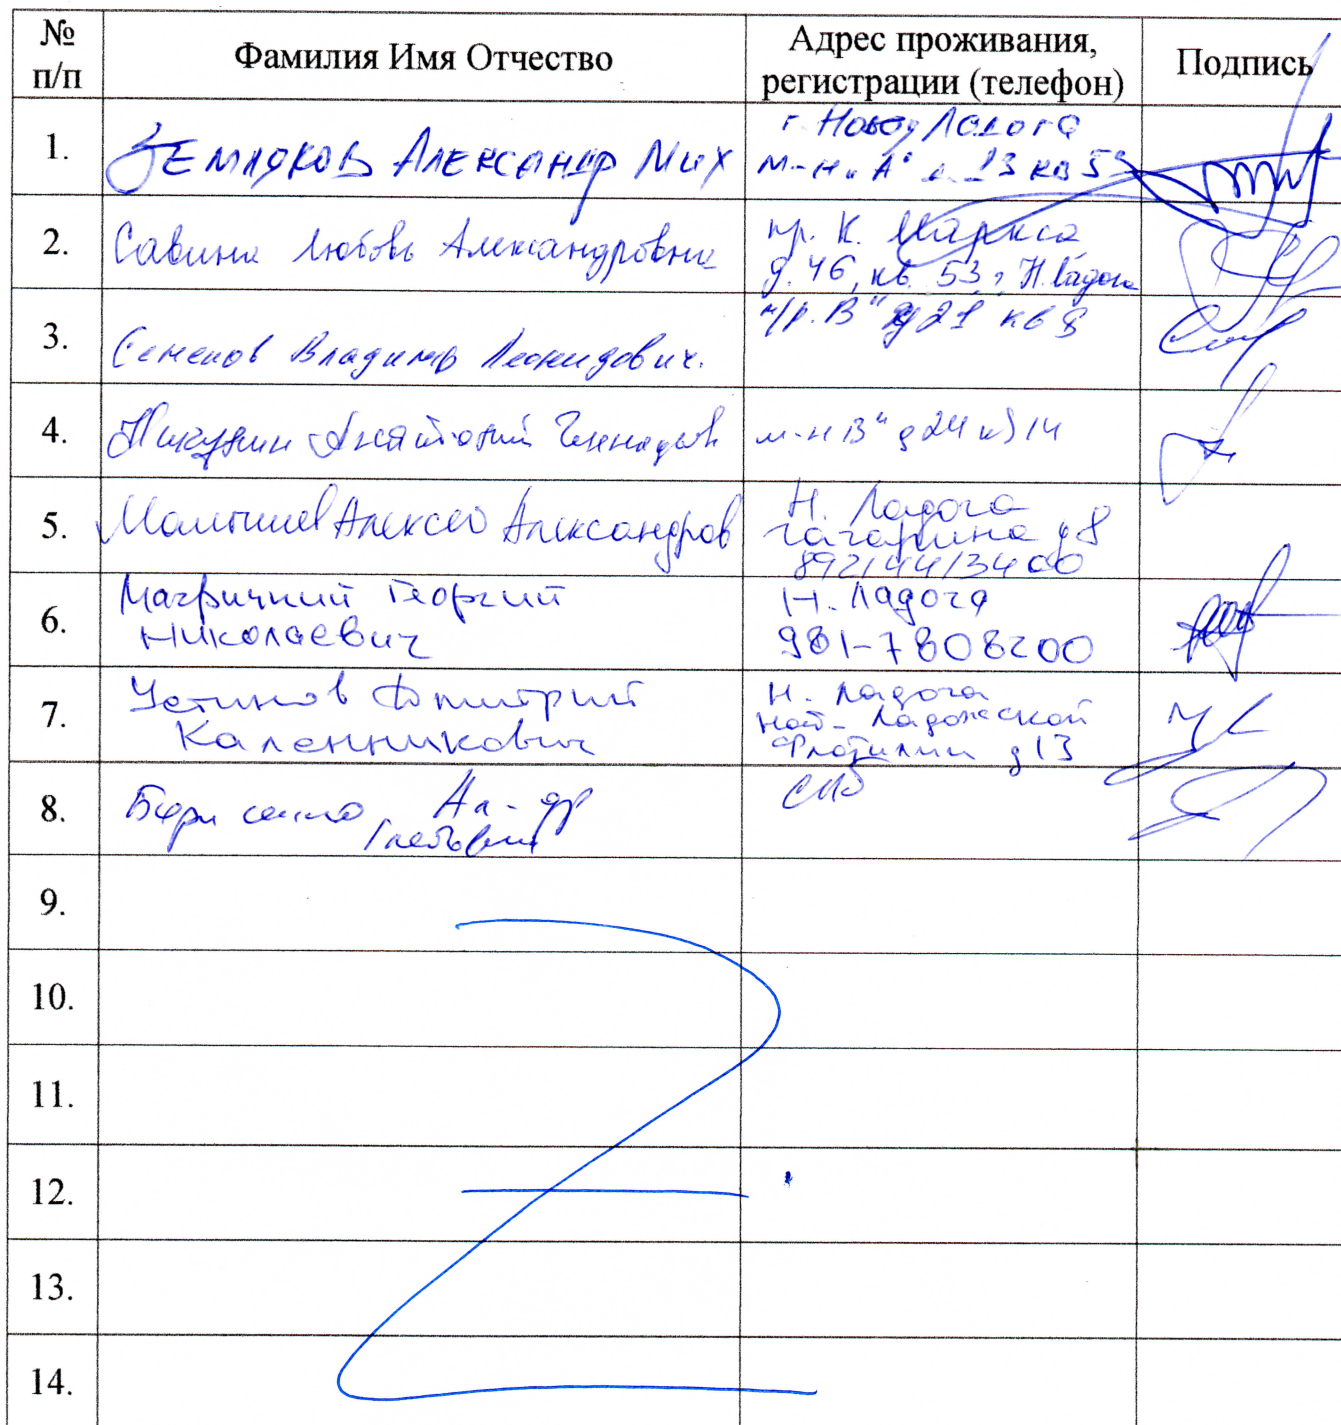 № п/п Фамилия Имя Отчество Адрес проживания, регистрации (телефон) Подпись
1. Земляков Александр Мих
г. Новая Ладога
м-н "А" д. 13 кв 53
2. Савина Любовь Александровна
пр. К. Маркса
д. 46, кв. 53 г. Н. Ладога
3. Семенов Владимир Леонидович.
м/р. В" д 21 кв 8
4. Анатолий Геннадьев
м-н В" д 24 кв 14
5. Малышев Алексей Александров
Н. Ладога
Гагарина д 8
89214413400
6. Георгий
Николаевич
Н. Ладога
981-7808200
7. Устинов Дмитрий
Каленникович
Н. Ладога
Ладожской
Флотилии д 13
8. Борисенко Ал-др
Глебович
СПб
9.
10.
11.
12.
13.
14.